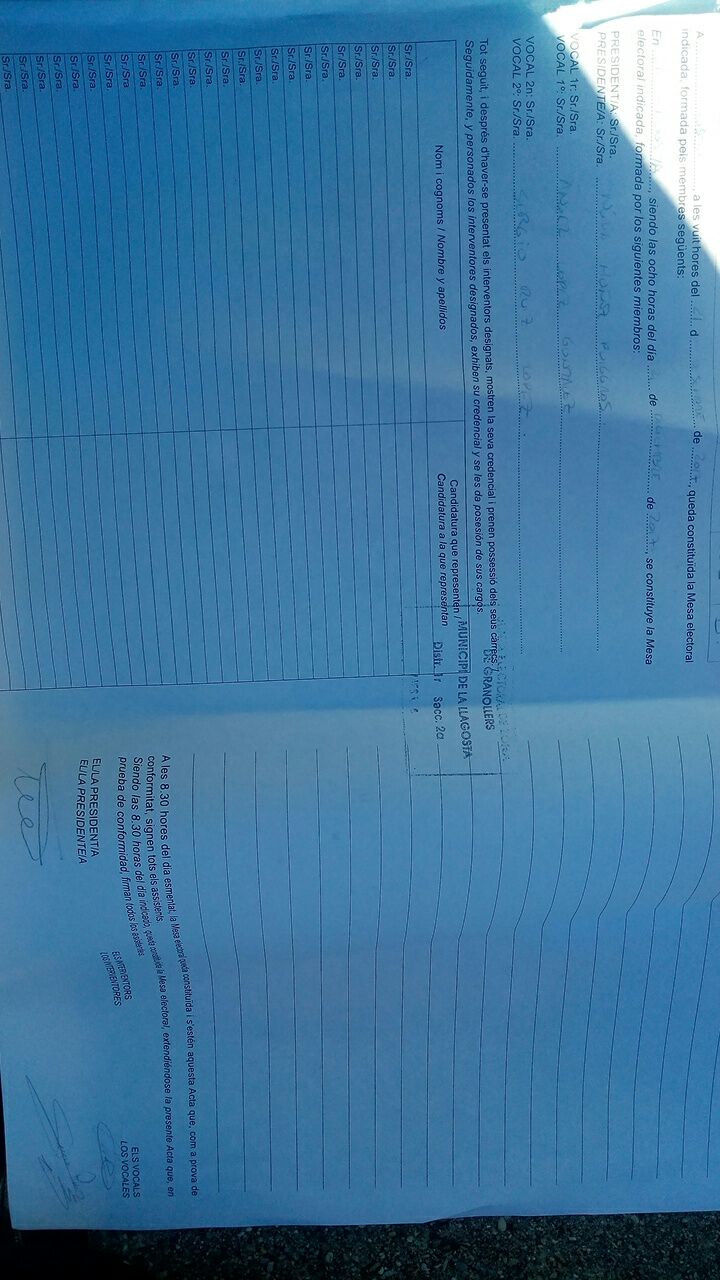 A ............, a les vuit hores del ...... d ............ de 2017, queda constituïda la Mesa electoral
indicada, formada pels membres següents:
En ............, siendo las ocho horas del día ...... de ............ de 2017, se constituye la Mesa
electoral indicada, formada por los siguientes miembros:
PRESIDENT/A: Sr./Sra.
PRESIDENTE/A: Sr./Sra.
VOCAL 1r: Sr./Sra.
VOCAL 1º: Sr./Sra.
VOCAL 2n: Sr./Sra.
VOCAL 2º: Sr./Sra. SERGIO RUZ LOPEZ
Tot seguit, i després d'haver-se presentat els interventors designats, mostren la seva credencial i prenen possessió dels seus càrrecs.
Seguidamente, y personados los interventores designados, exhiben su credencial y se les da posesión de sus cargos.
DE GRANOLLERS
MUNICIPI DE LA LLAGOSTA
Distr. 1r Secc. 2a
Nom i cognoms / Nombre y apellidos
Candidatura que representen /
Candidatura a la que representan
Sr./Sra.
Sr./Sra.
Sr./Sra.
Sr./Sra.
Sr./Sra.
Sr./Sra.
Sr./Sra.
Sr./Sra.
Sr./Sra.
Sr./Sra.
Sr./Sra.
Sr./Sra.
Sr./Sra.
Sr./Sra.
Sr./Sra.
Sr./Sra.
Sr./Sra.
Sr./Sra.
Sr./Sra.
Sr./Sra.
Sr./Sra.
Sr./Sra.
Sr./Sra.
Sr./Sra.
Sr./Sra.
A les 8.30 hores del dia esmentat, la Mesa electoral queda constituïda i s'estén aquesta Acta que, com a prova de
conformitat, signen tots els assistents.
Siendo las 8.30 horas del día indicado, queda constituida la Mesa electoral, extendiéndose la presente Acta que, en
prueba de conformidad, firman todos los asistentes.
EL/LA PRESIDENT/A
EL/LA PRESIDENTE/A
ELS INTERVENTORS
LOS INTERVENTORES
ELS VOCALS
LOS VOCALES